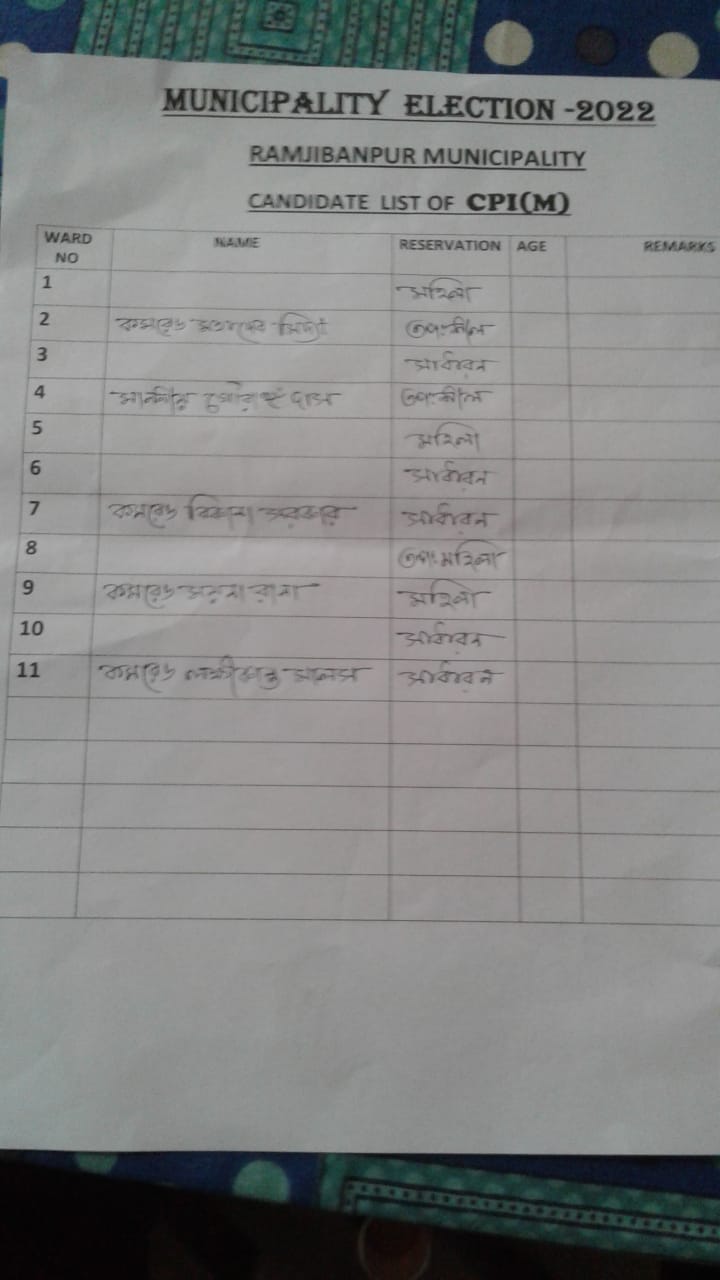 MUNICIPALITY ELECTION -2022
RAMJIBANPUR MUNICIPALITY
CANDIDATE LIST OF CPI(M)
WARD NO NAME RESERVATION AGE REMARKS
1 মহিলা
2 কমরেড তপঃশীল
3 সাধারন
4 দাস তপঃশীল
5 মহিলা
6 সাধারন
7 কমরেড বিকাশ সরকার সাধারন
8 তপঃ মহিলা
9 কমরেড মহিলা
10 সাধারন
11 কমরেড লক্ষীকান্ত সাধারন